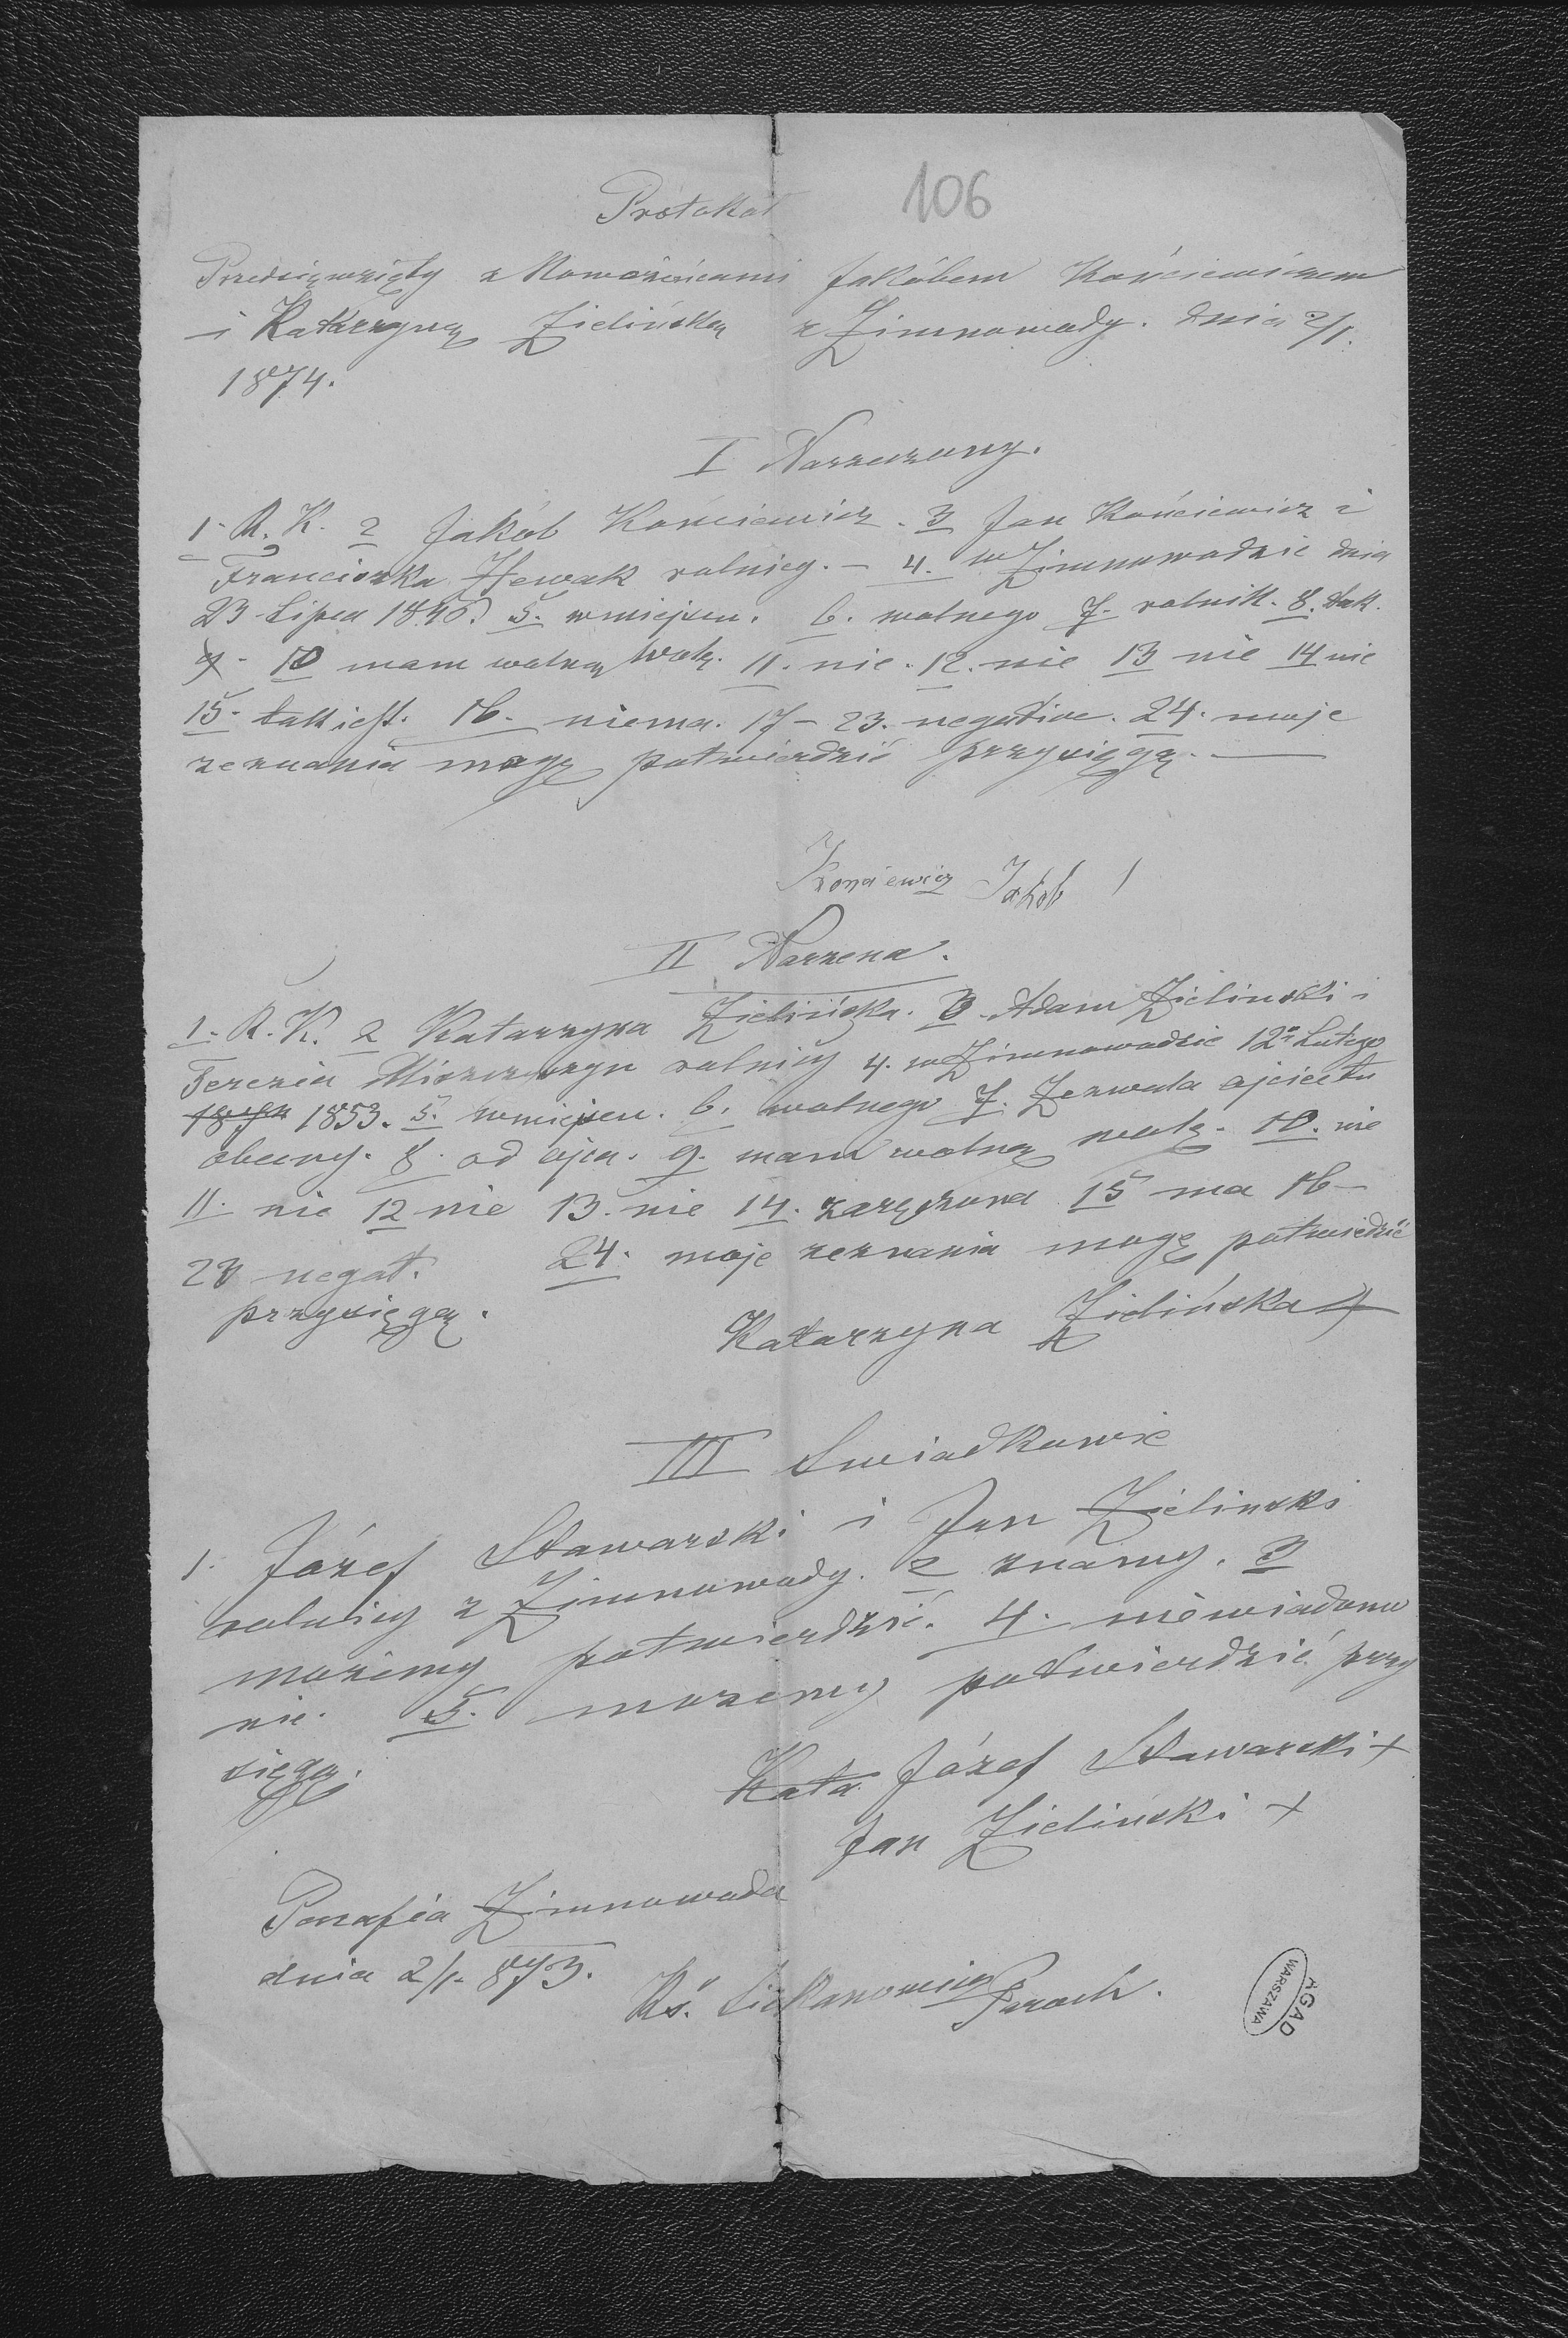 Protokoł
106
Przedsięwzięty z Nowożeńcami Jakóbem Kończewiczem
i Katarzyną Zielińską z Zimnowody. dnia 2/1.
1874.
I Narzeczony.
1. R. K. 2 Jakób Końciewicz. 3 Jan Końciewicz i
Franciszka rolnicy. - 4. w Zimnowodzie dnia
23 Lipca 1846. 5. w miejscu. 6. wolnego 7. rolnik. 8. tak.
9. - 10 mam wolną wolę. 11. nie. 12. nie 13 nie 14 nie
15. tak jest. 16. niema. 17 - 23. negative. 24. moje
zeznania mogę potwierdzić przysięgą.
Konciewicz Jakob
II Narzena.
1. R. K. 2 Katarzyna Zielińska. 3. Adam Zielinski i
Terezia rolnicy 4. w Zimnowodzie 12º Lutego
1853. 5. w miejscu. 6. wolnego 7. Zezwala ojciec tu
obecny. 8. od ojca. 9. mam wolną wolę. 10. nie
11. nie 12 nie 13. nie 14. zaręczona 15 ma 16 -
23 negat. 24. moje zeznania mogę potwiedzić
przysięgą.
Katarzyna Zielińska +
III Swiadkowie
1. Józef Stawarski i Jan Zielinski
rolnicy z Zimnowody. 2 znamy. 3
mozemy potwierdzić. 4. niewiadomo
nic. 5. mozemy potwierdzić przy
sięgą.
Kata Józef Stawarski +
Jan Zieliński +
Parafia Zimnowoda
dnia 2/1. 873.
Ks. Proch.
AGAD
WARSZAWA